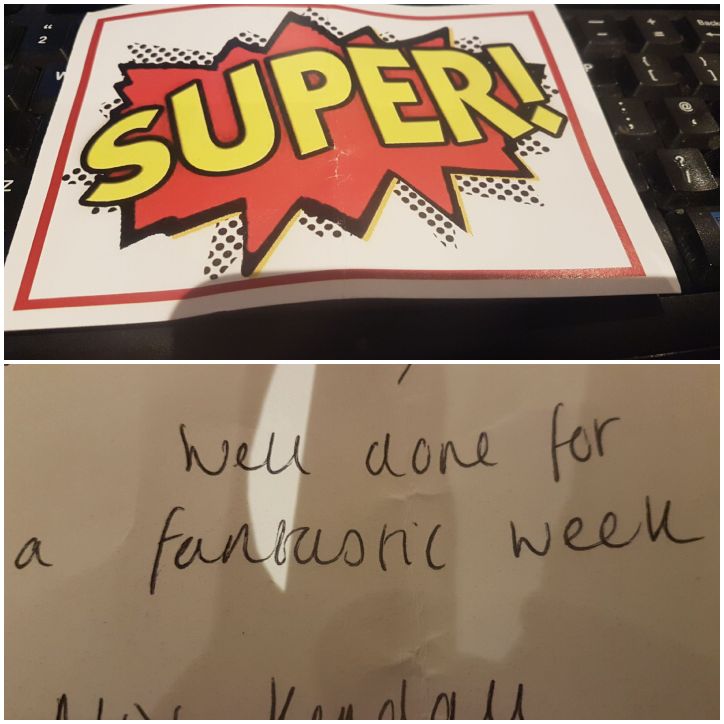 Back
SUPER!
Well done for
a fantastic week
Kendall